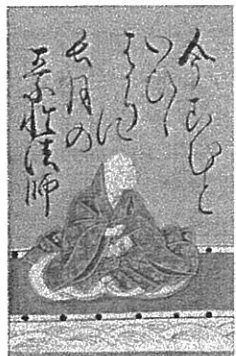 今こむと
いひし
はかりに
長月の
素性法師